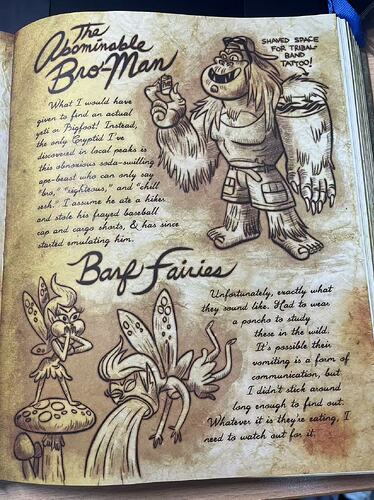 The
Abominable
Bro-Man
SHAVED SPACE
FOR TRIBAL-
BAND
TATTOO!
What I would have
given to find an actual
yeti or Bigfoot! Instead,
the only Cryptid I've
discovered in local peaks is
this obnoxious soda-swilling
ape-beast who can only say
"bro," "righteous," and "chill
sesh." I assume he ate a hiker
and stole his frayed baseball
cap and cargo shorts, & has since
started emulating him.
Barf Fairies
Unfortunately, exactly what
they sound like. Had to wear
a poncho to study
these in the wild.
It's possible their
vomiting is a form of
communication, but
I didn't stick around
long enough to find out.
Whatever it is they're eating, I
need to watch out for it.